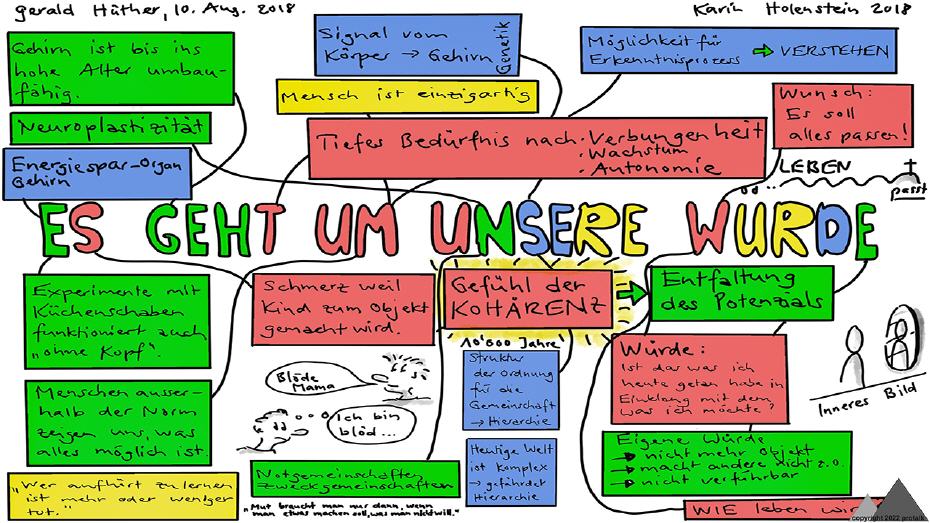 gerald Hüther, 10. Aug. 2018
Karin Holenstein 2018
Gehirn ist bis ins
hohe Alter umbau-
fähig.
Signal vom
Körper → Gehirn
Genetik
Möglichkeit für
Erkenntnisprozess → VERSTEHEN
Mensch ist einzigartig
Wunsch:
Es soll
alles passen!
Neuroplastizität
Tiefes Bedürfnis nach · Verbungenheit
· Wachstum
· Autonomie
Energiespar-Organ
Gehirn
LEBEN
passt
ES GEHT UM UNSERE WÜRDE
Experimente mit
Küchenschaben
funktioniert auch
„ohne Kopf".
Schmerz weil
Kind zum Objekt
gemacht wird.
Gefühl der
KOHÄRENZ
Entfaltung
des Potenzials
10'600 Jahre
Struktur
der Ordnung
für die
Gemeinschaft
→ Hierarchie
Würde:
Ist das was ich
heute getan habe in
Einklang mit dem,
was ich möchte?
Inneres Bild
Blöde
Mama
Ich bin
blöd...
Menschen ausser-
halb der Norm
zeigen uns, was
alles möglich ist.
Heutige Welt
ist komplex
→ gefährdet
Hierarchie
Eigene Würde
→ nicht mehr Objekt
→ macht andere nicht z.O.
→ nicht verführbar
Notgemeinschaften,
Zweckgemeinschaften
„Wer aufhört zu lernen
ist mehr oder weniger
tot."
„Mut braucht man nur dann, wenn
man etwas machen soll, was man nicht will."
WIE leben wir
copyright 2022 protalk